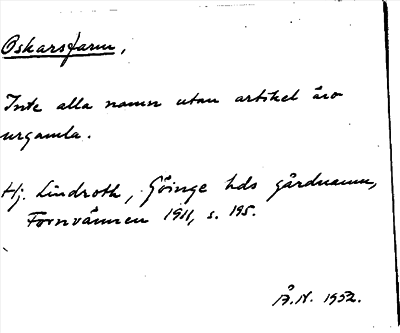 Oskarsfarm,
Inte alla namn utan artikel äro
urgamla.
Hj. Lindroth, Göinge hds gårdnamn,
Fornvännen 1911, s. 195.
Å.N. 1952.